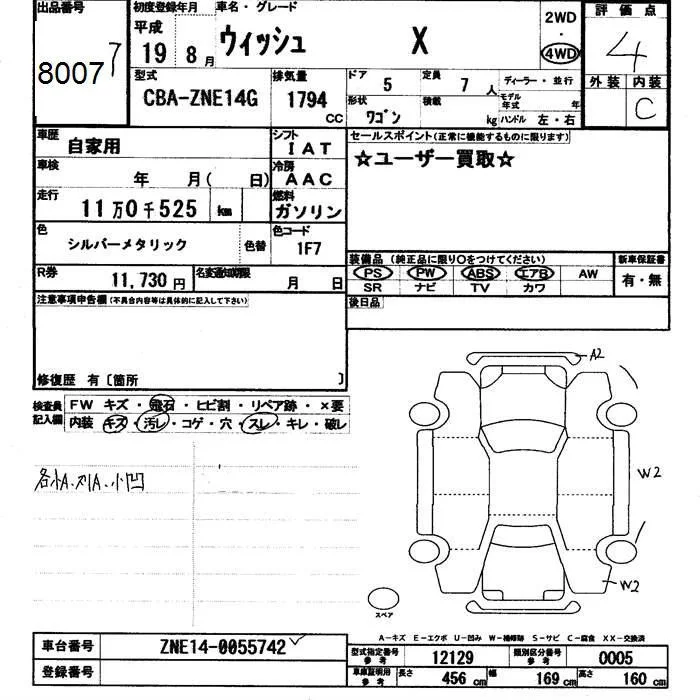 出品番号 初度登録年月 車名・グレード 2WD・4WD 評価点
8007 7 平成 19 8月 ウィッシュ X 4
型式 CBA-ZNE14G 排気量 1794 CC ドア 5 定員 7人 ディーラー・並行 外装 内装 C
形状 ワゴン 積載 kg モデル年式 年 ハンドル 左・右
車歴 自家用 シフト IAT セールスポイント(正常に機能するものに限ります)
車検 年 月( 日) 冷房 AAC ☆ユーザー買取☆
走行 11万0千525 km 燃料 ガソリン
色 シルバーメタリック 色替 色コード 1F7
装備品(純正品に限り○をつけてください) 新車保証書
R券 11,730円 名変通知期限 月 日 PS PW ABS エアB AW 有・無
SR ナビ TV カワ
注意事項申告欄(不具合内容等は具体的に記入して下さい) 後日品
修復歴 有〔箇所 〕
検査員記入欄 FW キズ・飛石・ヒビ割・リペア跡・×要
内装 キズ・汚レ・コゲ・穴・スレ・キレ・破レ
各小A、刈A、小凹
A2
W2
W2
スペア
A-キズ E-エクボ U-凹み W-補修跡 S-サビ C-腐食 XX-交換済
車台番号 ZNE14-0055742 型式指定番号 参考 12129 類別区分番号 参考 0005
登録番号 車庫証明用 参考 長さ 456 cm 幅 169 cm 高さ 160 cm